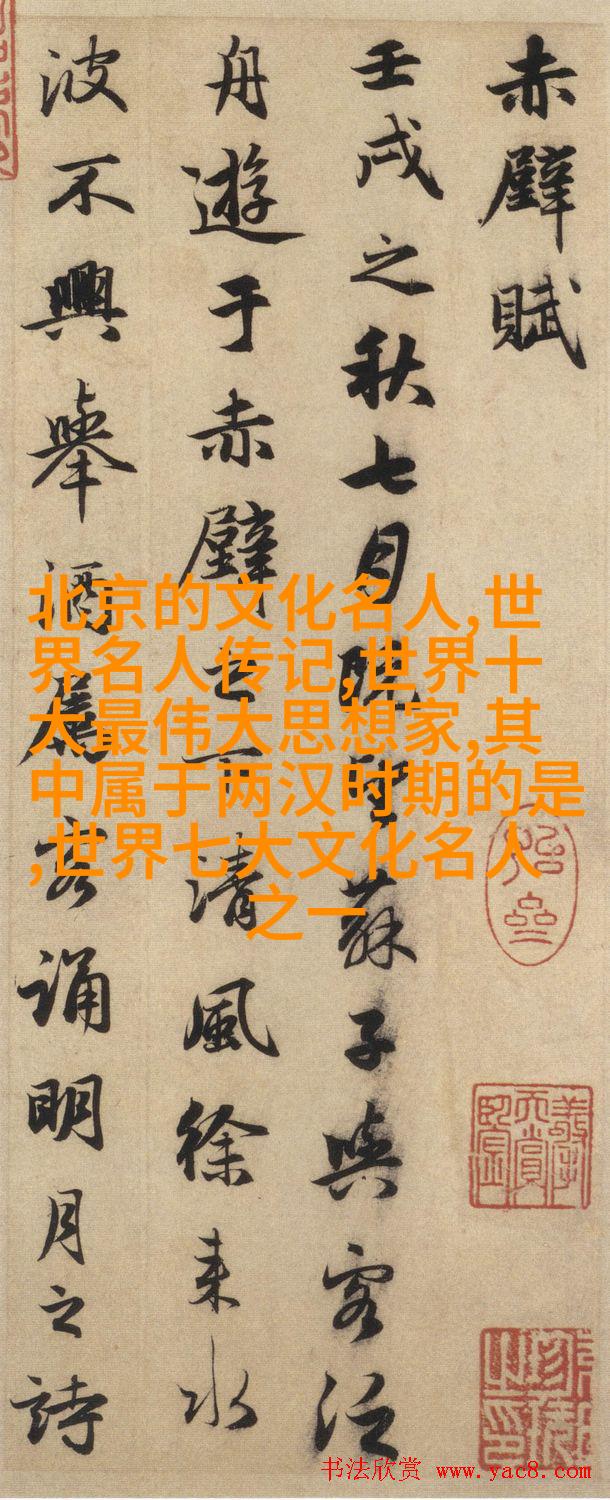 赤壁賦
壬戌之秋七月既望蘇子與客泛
舟遊于赤壁之下清風徐来水
波不興舉酒屬客誦明月之詩
北京的文化名人,世
界名人传记,世界十
大最伟大思想家,其
中属于两汉时期的是
,世界七大文化名人
之一
书法欣赏 www.yac8.com